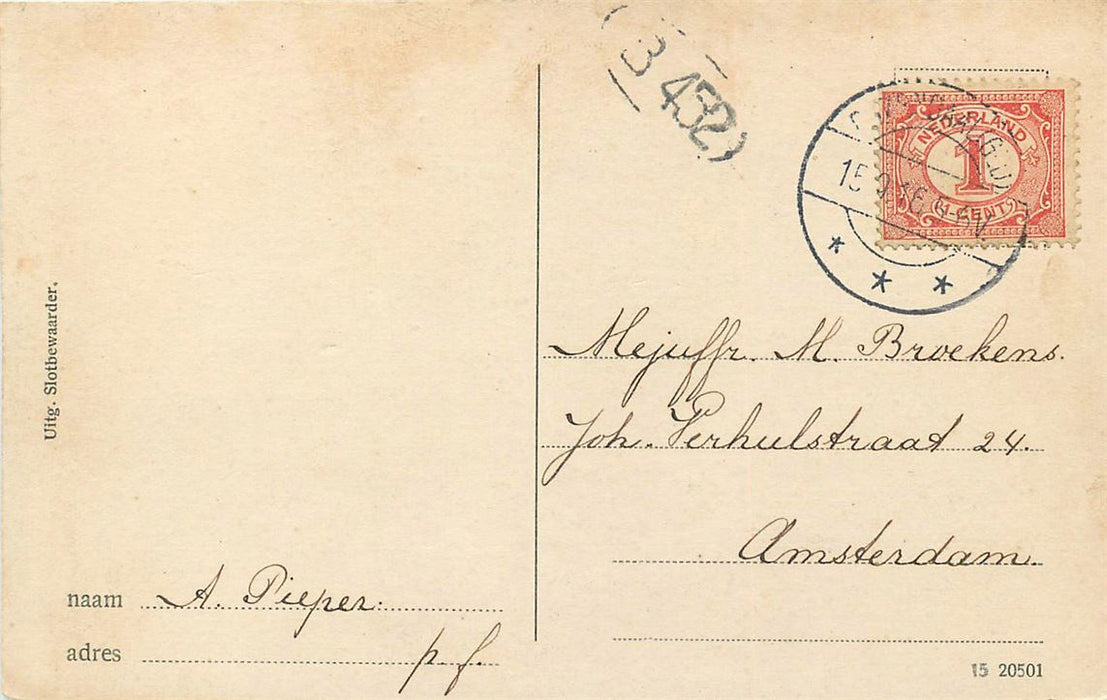 3 452
NEDERLAND
1
(1-CENT)
15.9.16
Mejuffr. M. Broekens.
Joh. Verhulstraat 24.
Amsterdam.
naam A. Pieper.
adres p.f.
Uitg. Slotbewaarder.
15 20501